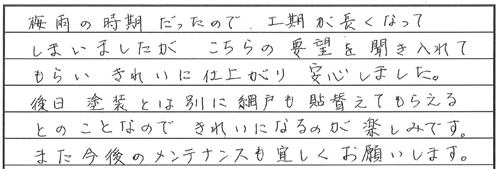 梅雨の時期だったので、工期が長くなって
しまいましたが こちらの要望を聞き入れて
もらい きれいに仕上がり 安心しました。
後日 塗装とは別に網戸も貼替えてもらえる
とのことなので きれいになるのが楽しみです。
また今後のメンテナンスも宜しくお願いします。